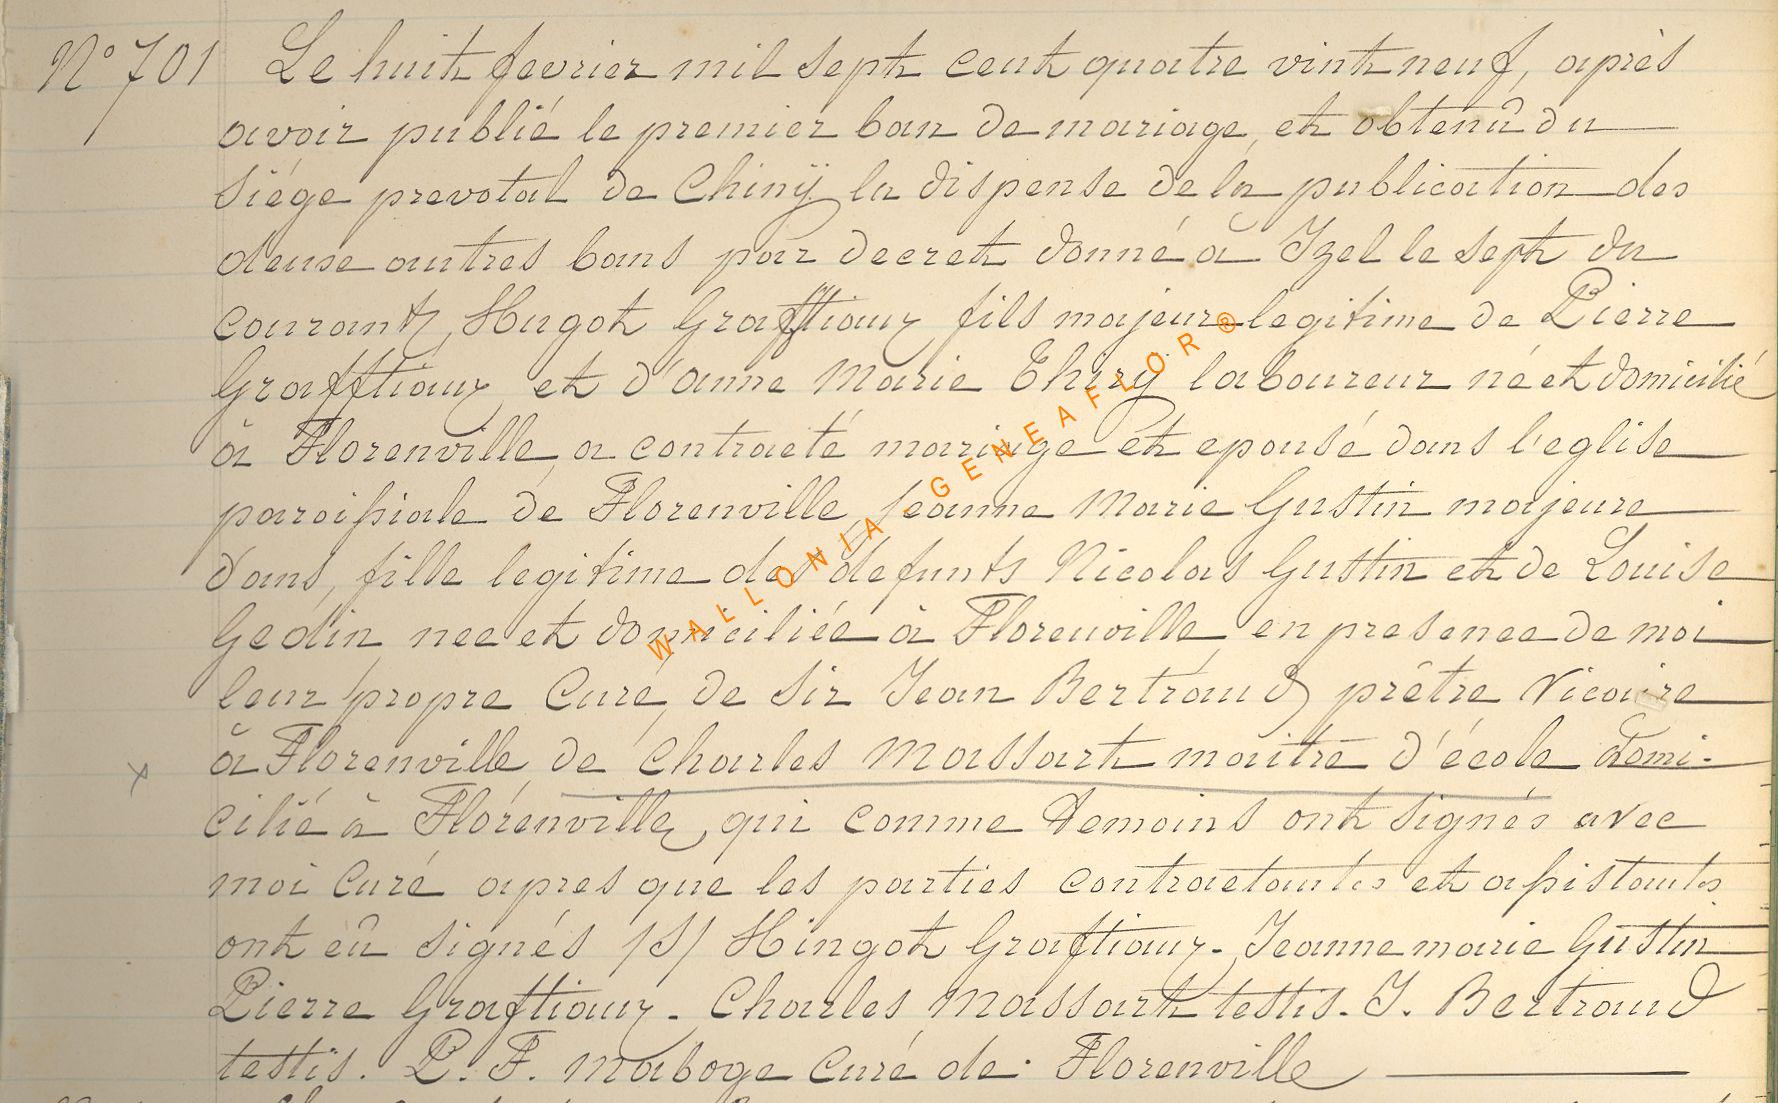 N° 701 Le huit fevrier mil sept cent quatre vint neuf, après
avoir publié le premier ban de mariage, et obtenû du
siége prevotal de Chinÿ la dispense de la publication des
deuse autres bans par decret donné à Izel le sept du
courant, Hugot Grafftiaux fils majeur legitime de Pierre
Grafftiaux et d'anne Marie Thirÿ laboureur né et domicilié
à Florenville, a contracté mariage et epousé dans l'eglise
paroissiale de Florenville Jeanne Marie Gustin majeure
dans, fille legitime des defunts Nicolas Gustin et de Louise
Gedin nee et domiciliée à Florenville, en presence de moi
leur propre Curé, de Sir Jean Bertrand prêtre Vicaire
à Florenville, de Charles Massart maitre d'école domi-
cilié à Florenville, qui comme temoins ont signés avec
moi Curé apres que les parties contractantes et assistantes
ont eû signés /S/ Hingot Graftiaux - Jeanne marie Gustin
Pierre Graftiaux - Charles Massart testis - J. Bertrand
testis. P. F. Maboge Curé de Florenville
WALLONIA - GENEAFLOR®